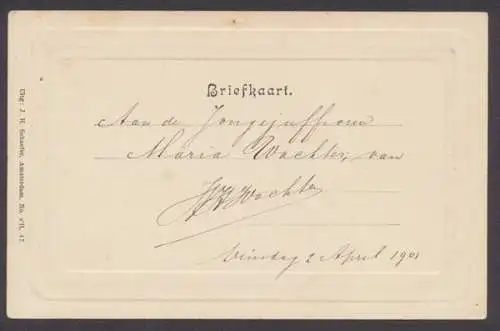 Briefkaart.
Aan de Jongejuffrouw
Maria Wachter, van
Wachter
Dinsdag 2 April 1901
Uitg: J. H. Schaefer, Amsterdam, No.